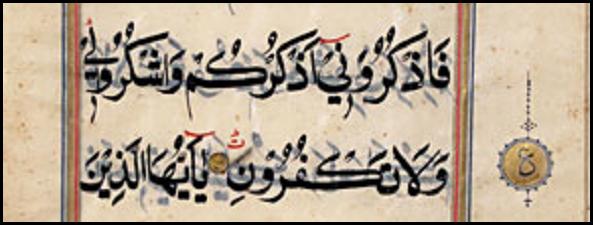 فَاذْكُرُونِيٓ أَذْكُرْكُمْ وَاشْكُرُوا لِي
وَلَا تَكْفُرُونِ يَٓا أَيُّهَا الَّذِينَ